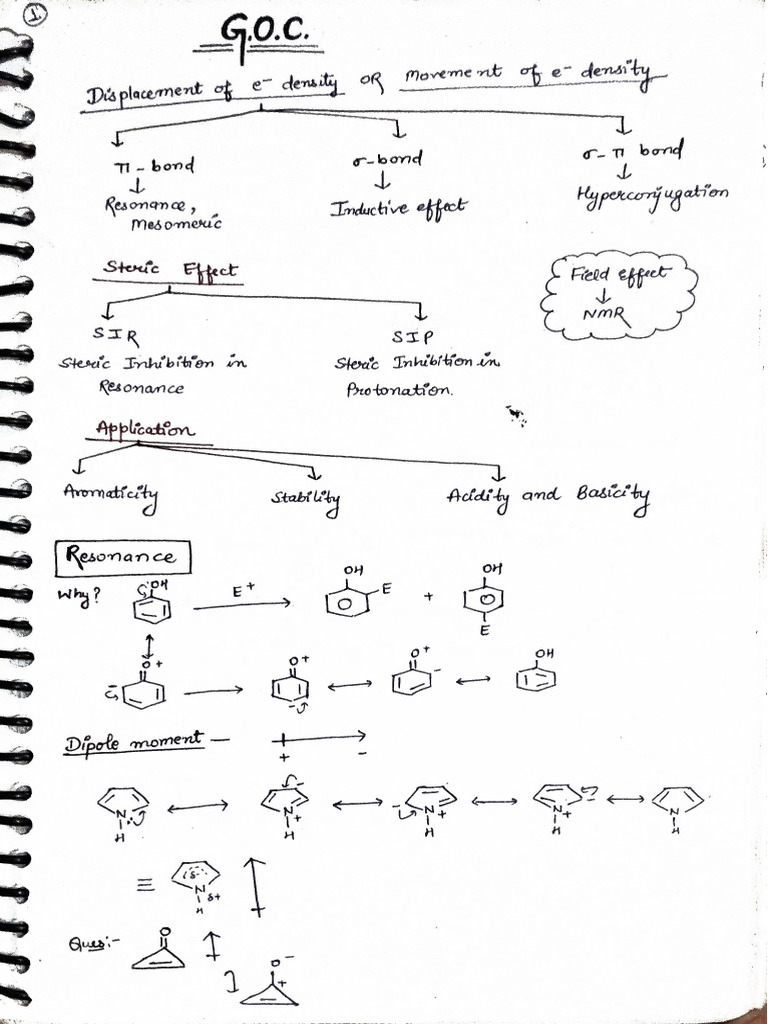 1
G.O.C.
Displacement of e⁻ density OR movement of e⁻ density
π - bond
σ-bond
σ- π bond
Resonance,
Mesomeric
Inductive effect
Hyperconjugation
Steric Effect
Field effect
NMR
SIR
SIP
Steric Inhibition in
Resonance
Steric Inhibition in
Protonation.
Application
Aromaticity
Stability
Acidity and Basicity
Resonance
Why?
OH
E⁺
OH
E
+
OH
E
O +
-
O +
-
O +
-
OH
Dipole moment —
+ -
N
H
-
N +
H
-
N +
H
-
N +
H
N
H
≡
δ-
N δ+
H
Ques:-
O
O⁻
+